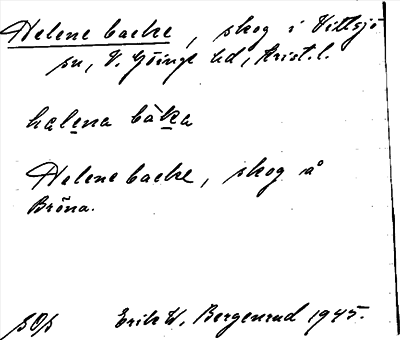 Helene backe, skog i Vittsjö
sn, V. Göinge hd, Krist. l.
helena bàka
Helene backe, skog å
Bröna.
Erik W. Bergenrud 1945.